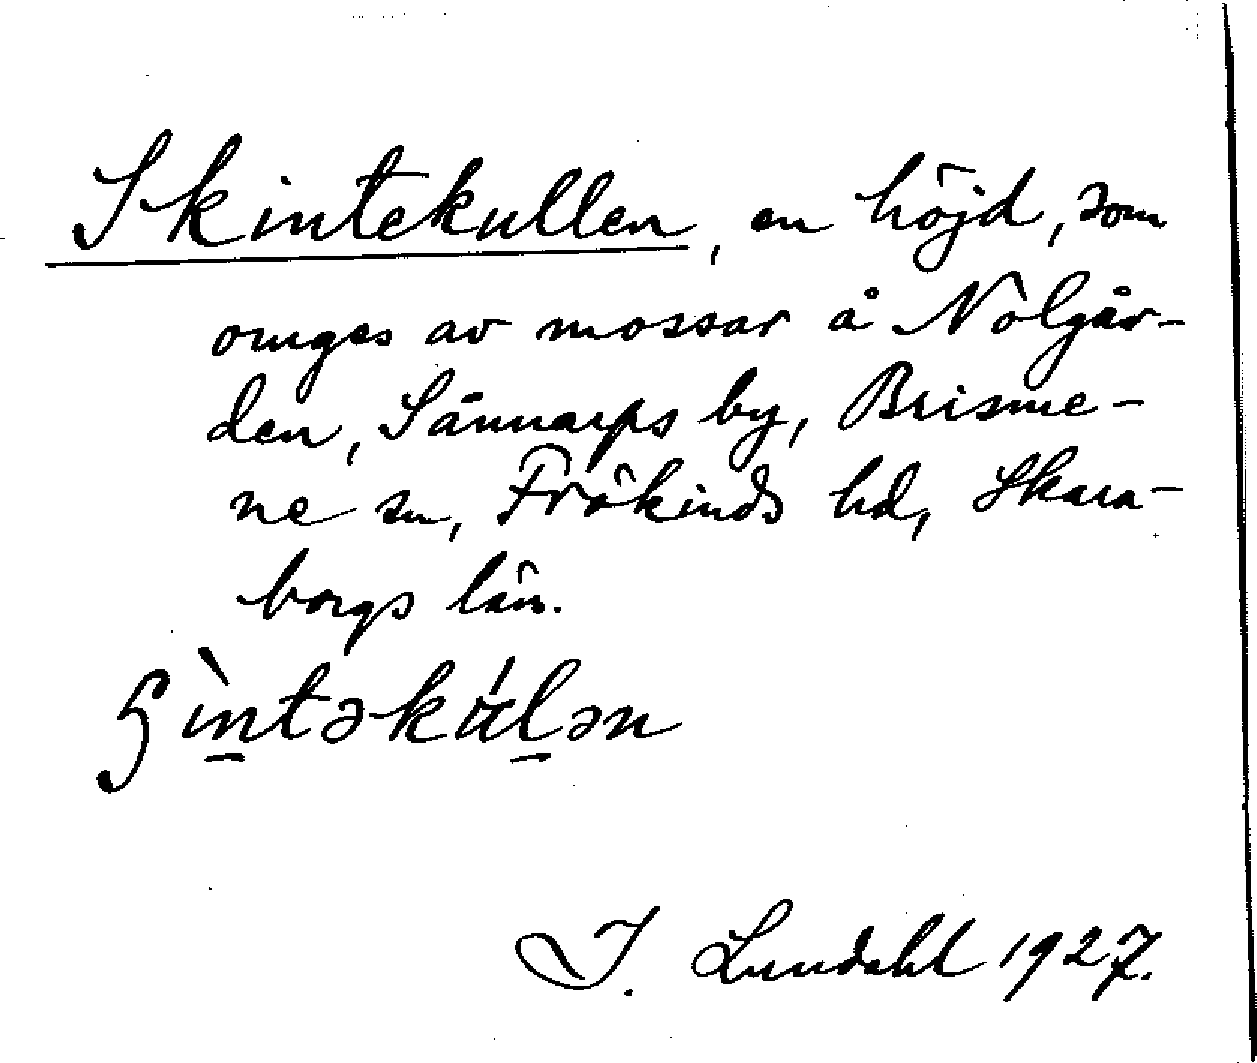 Skintekullen, en höjd, som
omges av mossar å Nolgår-
den, Sännarps by, Brisme-
ne sn, Frökinds hd, Skara-
borgs län.
ʂìn̲təkúl̲ən
I. Lundahl 1927.